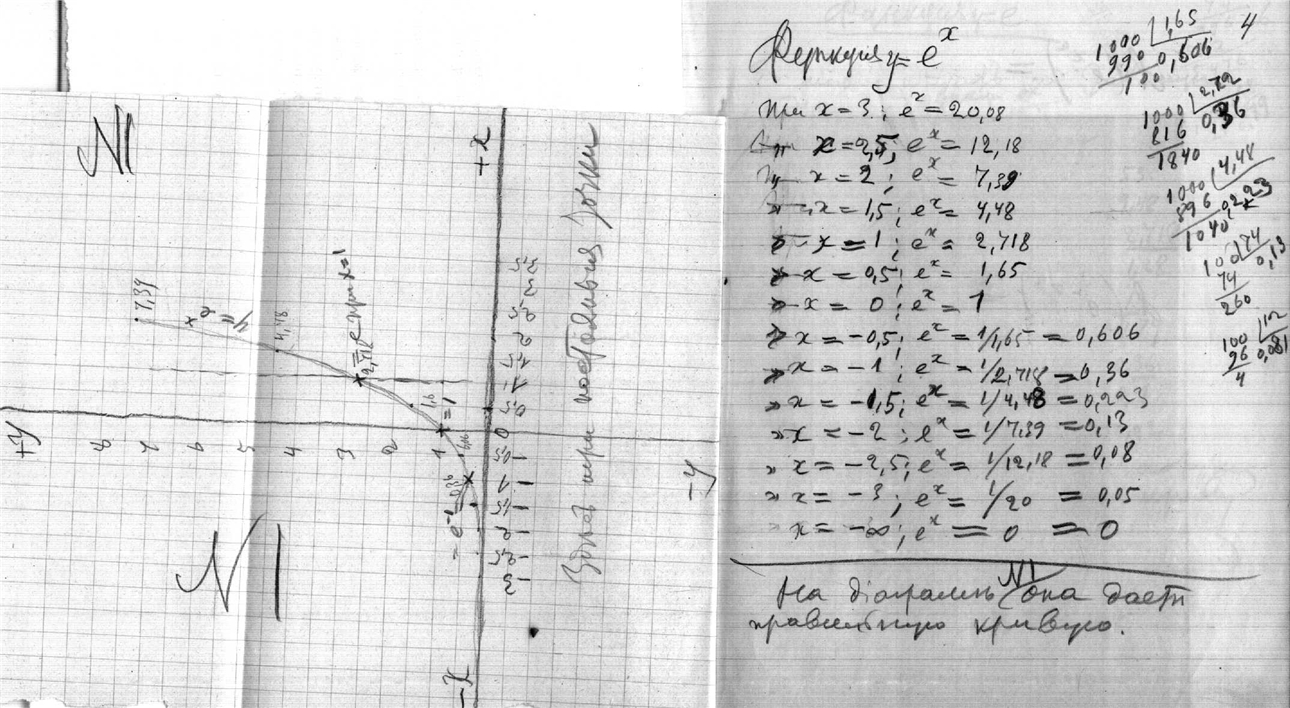 N1
+x
3,5
3
2,5
2
1,5
1
0,5
0
-0,5
-1
-1,5
-2
-2,5
-3
-x
+y
8
7
6
5
4
3
2
1
-y
7,39
y = e^x
4,48
2,718
= e при x=1
1,6
= 1
= e^-1 = 0,36
N1
точки
4
Функция y = e^x
при x = 3; e^x = 20,08
При x = 2,5; e^x = 12,18
x = 2; e^x = 7,39
" x = 1,5; e^x = 4,48
" x = 1; e^x = 2,718
" x = 0,5; e^x = 1,65
" x = 0; e^x = 1
" x = -0,5; e^x = 1/1,65 = 0,606
" x = -1; e^x = 1/2,718 = 0,36
" x = -1,5; e^x = 1/4,48 = 0,223
" x = -2; e^x = 1/7,39 = 0,13
" x = -2,5; e^x = 1/12,18 = 0,08
" x = -3; e^x = 1/20 = 0,05
" x = -∞; e^x = 0 = 0
N1
На діаграммѣ она даетъ
правильную кривую.
1000 | 1,65
990 0,606
100
1000 | 2,72
816 0,36
1840
1000 | 4,48
896 0,223
1040
100 | 74
74 0,13
260
100 | 12
96 0,081
4